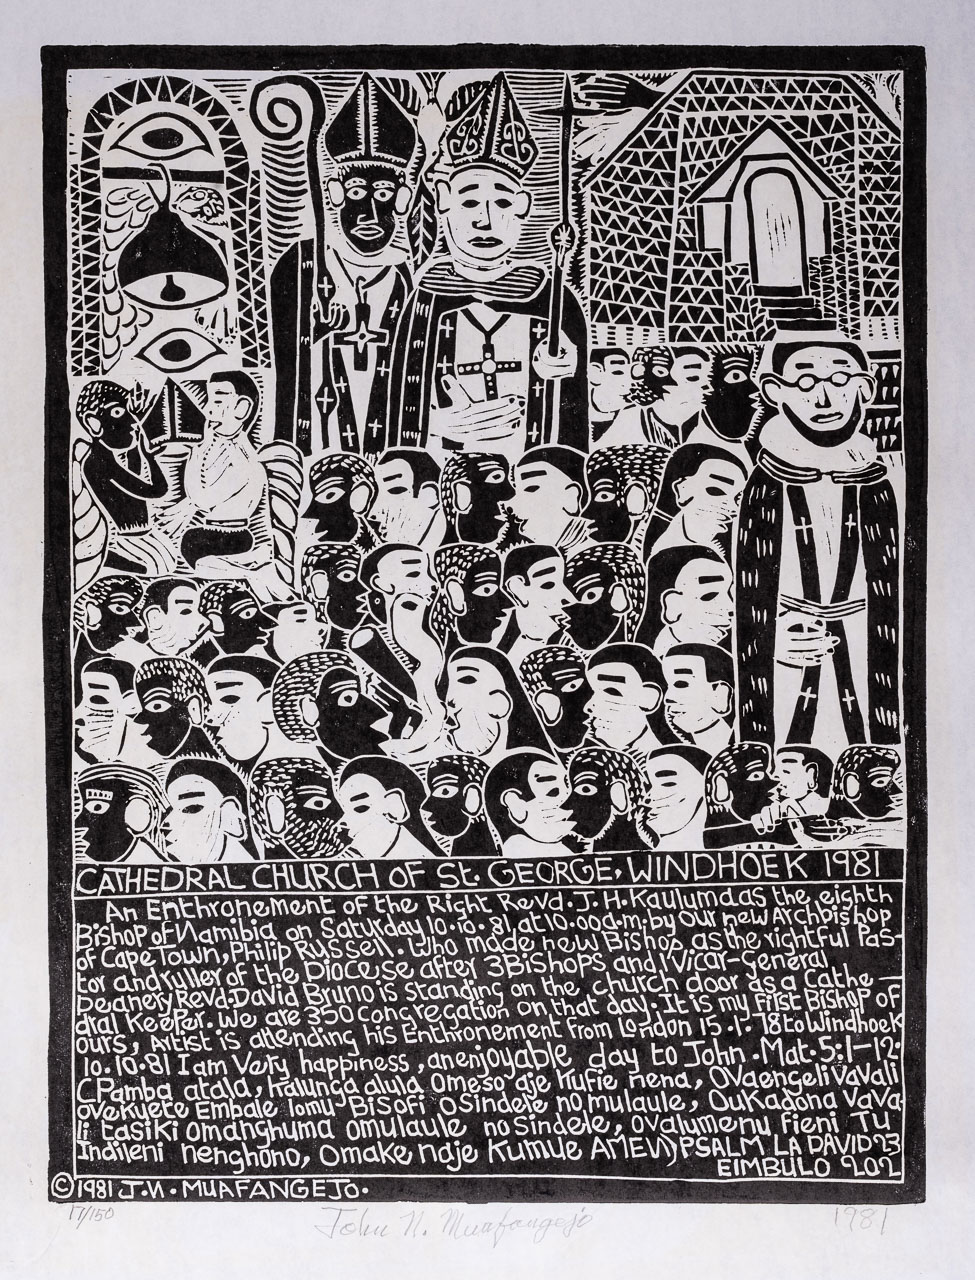 CATHEDRAL CHURCH OF St. GEORGE, WINDHOEK 1981
An Enthronement of the Right Revd. J. H. Kauluma as the eighth
Bishop of Namibia on Saturday 10.10.81 at 10.00a.m. by our new Archbishop
of Cape Town, Philip Russell. Who made new Bishop, as the rightful Pas-
tor and ruller of the Diocese after 3 Bishops and 1 Vicar-General
Deanery Revd. David Bruno is standing on the church door as a Cathe-
dral Keeper. We are 350 congregation on that day. It is my first Bishop of
ours, Artist is attending his Enthronement from London 15.1.78 to Windhoek
10.10.81 I am Very happiness, an enjoyable day to John. Mat. 5:1-12.
(Pamba atala, Kalunga alula Omeso gje Kufie nena, Ovaengeli vavali
ovekuete Embale lomu Bisofi osindele no mulaule, OuKadona vava-
li tasiki omanghuma omulaule nosindele, ovalumenu fieni Tu
Indileni nenghono, omake ndje Kumue AMEN) PSALM LA DAVID 23
EIMBULO 202
© 1981 J.N. MUAFANGEJO.
17/150 John N. Muafangejo 1981